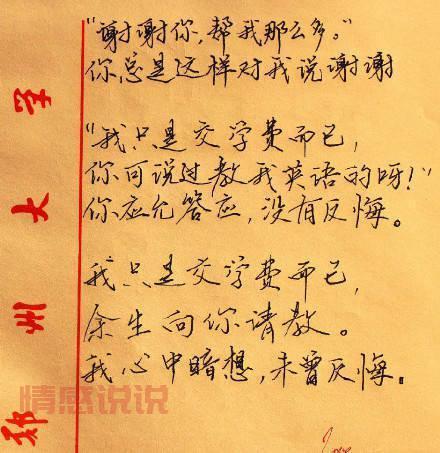 "谢谢你,帮我那么多。"
你总是这样对我说谢谢
"我只是交学费而已,
你可说过教我英语的呀!"
你应允答应,没有反悔。
我只是交学费而已,
余生向你请教。
我心中暗想,未曾反悔。
郑州大学
情感说说